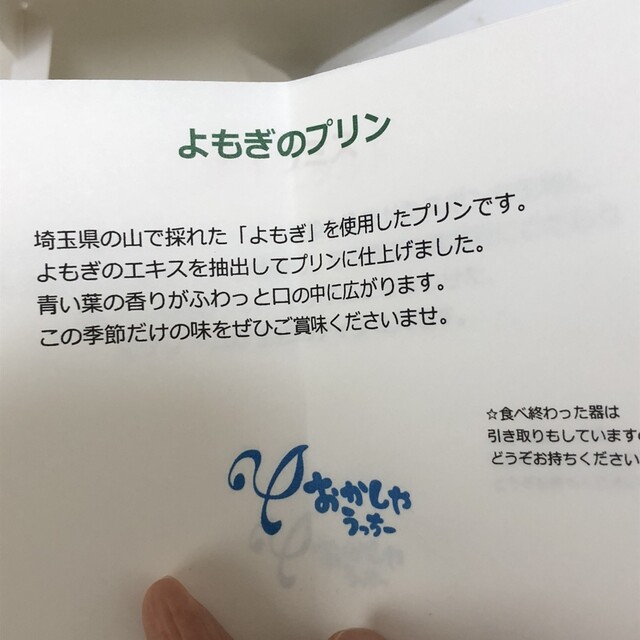 よもぎのプリン
埼玉県の山で採れた「よもぎ」を使用したプリンです。
よもぎのエキスを抽出してプリンに仕上げました。
青い葉の香りがふわっと口の中に広がります。
この季節だけの味をぜひご賞味くださいませ。
☆食べ終わった器は
引き取りもしています
どうぞお持ちください
おかしや
うっちー